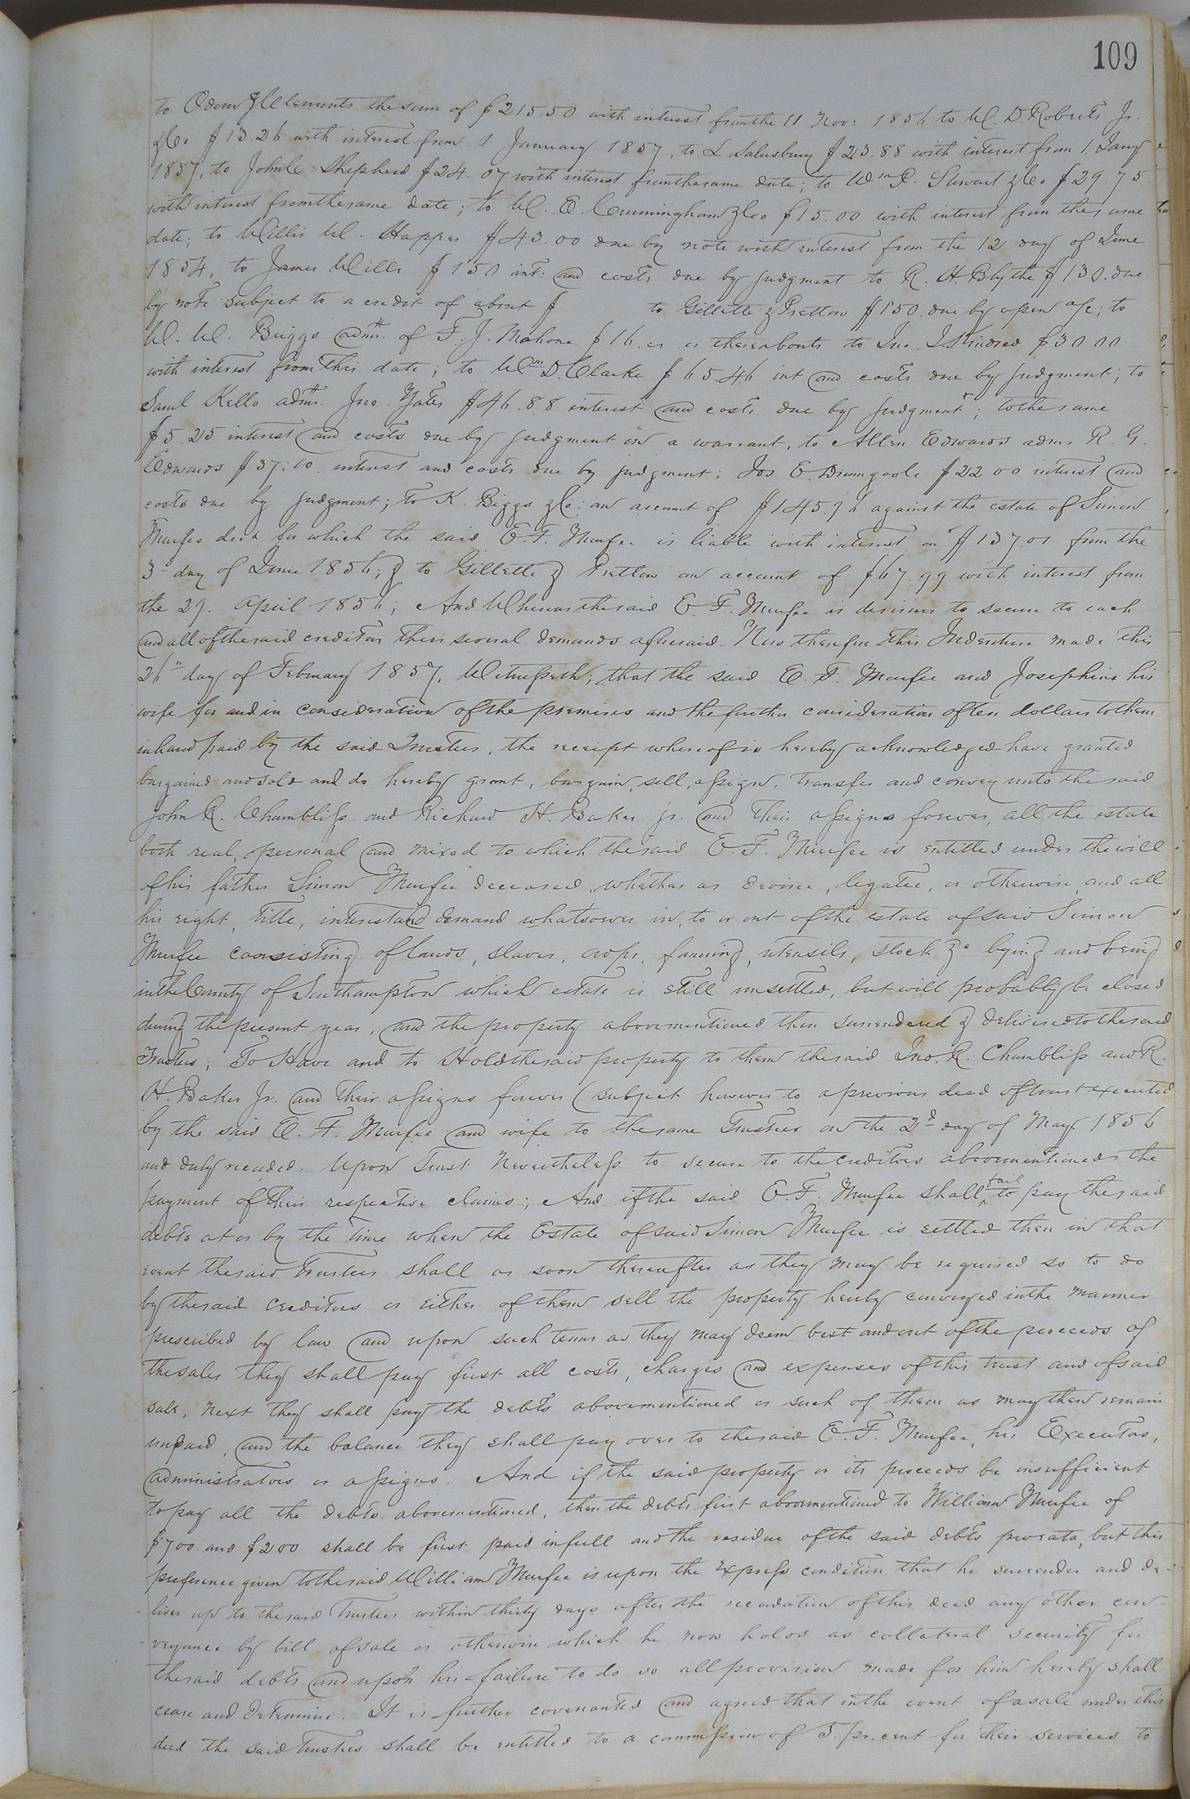 109
to Odom & Clements the sum of $215.50 with interest from the 11 Nov: 1856 to W. D Roberts Jr.
&Co $13.26 with interest from 1 January 1857, to L Salusbury $23.88 with interest from 1. Jany
1857, to John C Shepherd $24.07 with interest from the same date; to Wm P. Stewart & Co $29.75
with interest from the same date; to W. E. Cunningham & Co $15.00 with interest from the same
date; to Willis W. Happer $43.00 due by note with interest from the 12 day of June
1854, to James Wills $150 int: and costs due by judgment to R. H. Blythe $130. due
by note subject to a credit of about $ to Gillette & Pretlow $150. due by open a/c; to
W. W. Briggs admr. of F. J. Mahone $16. or thereabouts to Jno. J. Kindred $30 00
with interest from this date; to Wm D. Clarke $65.46 int and costs due by judgment; to
Saml Kello admr. Jno. Yates $46.88 interest and costs due by judgment; to the same
$5.25 interest and costs due by judgment on a warrant, to Allen Edwards admr R. G.
Edwards $37.10. interest and costs due by judgment; Jos E. Drumgoole $22 00 interest and
costs due by judgment; to K. Biggs & Co: an account of $145.76 against the estate of Simon
Murfee decd for which the said E. F. Murfee is liable with interest on $137.01 from the
3d day of June 1856; & to Gillette & Pretlow an account of $67.99 with interest from
the 29. April 1856; And Whereas the said E. F. Murfee is desirous to secure to each
and all of the said creditors their several demands aforesaid. Now therefore this Indenture made this
26th day of February 1857, Witnesseth, that the said E. F. Murfee and Josephine his
wife for and in consideration of the premises and the further consideration of ten dollars to them
in hand paid by the said Trustees, the receipt whereof is hereby acknowledged have granted
bargained and sold and do hereby grant, bargain, sell, assign, transfer and convey unto the said
John R. Chambliss and Richard H. Baker jr. and their assigns forever, all the estate
both real, personal and mixed to which the said E. F. Murfee is entitled under the will
of his father Simon Murfee deceased, whether as devisee, legatee, or otherwise, and all
his right, title, interest and demand whatsoever in, to or out of the estate of said Simon
Murfee consisting of lands, slaves, crops, farming utensils, stock &c lying and being
in the County of Southampton which estate is still unsettled, but will probably be closed
during the present year, and the property abovementioned then surrendered & delivered to the said
Trustees; To Have and to Hold the said property to them the said Jno. R. Chambliss and R.
H. Baker Jr. and their assigns forever (subject however to a previous deed of trust executed
by the said E. F. Murfee and wife to the same Trustees on the 2d day of May 1856
and duly recorded. Upon Trust Nevertheless to secure to the creditors abovementioned the
payment of their respective claims; And if the said E. F. Murfee shall fail to pay the said
debts at or by the time when the Estate of said Simon Murfee is settled then in that
event the said Trustees shall as soon thereafter as they may be required so to do
by the said creditors or either of them sell the property hereby conveyed in the manner
prescribed by law and upon such terms as they may deem best and out of the proceeds of
the sales they shall pay first all costs, charges and expenses of this trust and of said
sale, next they shall pay the debts abovementioned or such of them as may then remain
unpaid, and the balance they shall pay over to the said E. F. Murfee, his Executors,
administrators or assigns. And if the said property or its proceeds be insufficient
to pay all the debts abovementioned, then the debts first abovementioned to William Murfee of
$700 and $200 shall be first paid in full and the residue of the said debts prorata, but this
preference given to the said William Murfee is upon the Express condition that he surrender and de-
liver up to the said Trustees within thirty days after the recordation of this deed any other con-
veyance by bill of sale or otherwise which he now holds as collateral security for
the said debts and upon his failure to do so all provision made for him hereby shall
cease and determine. It is further covenanted and agreed that in the event of a sale under this
deed the said Trustees shall be entitled to a commission of 5. pr. cent for their services to